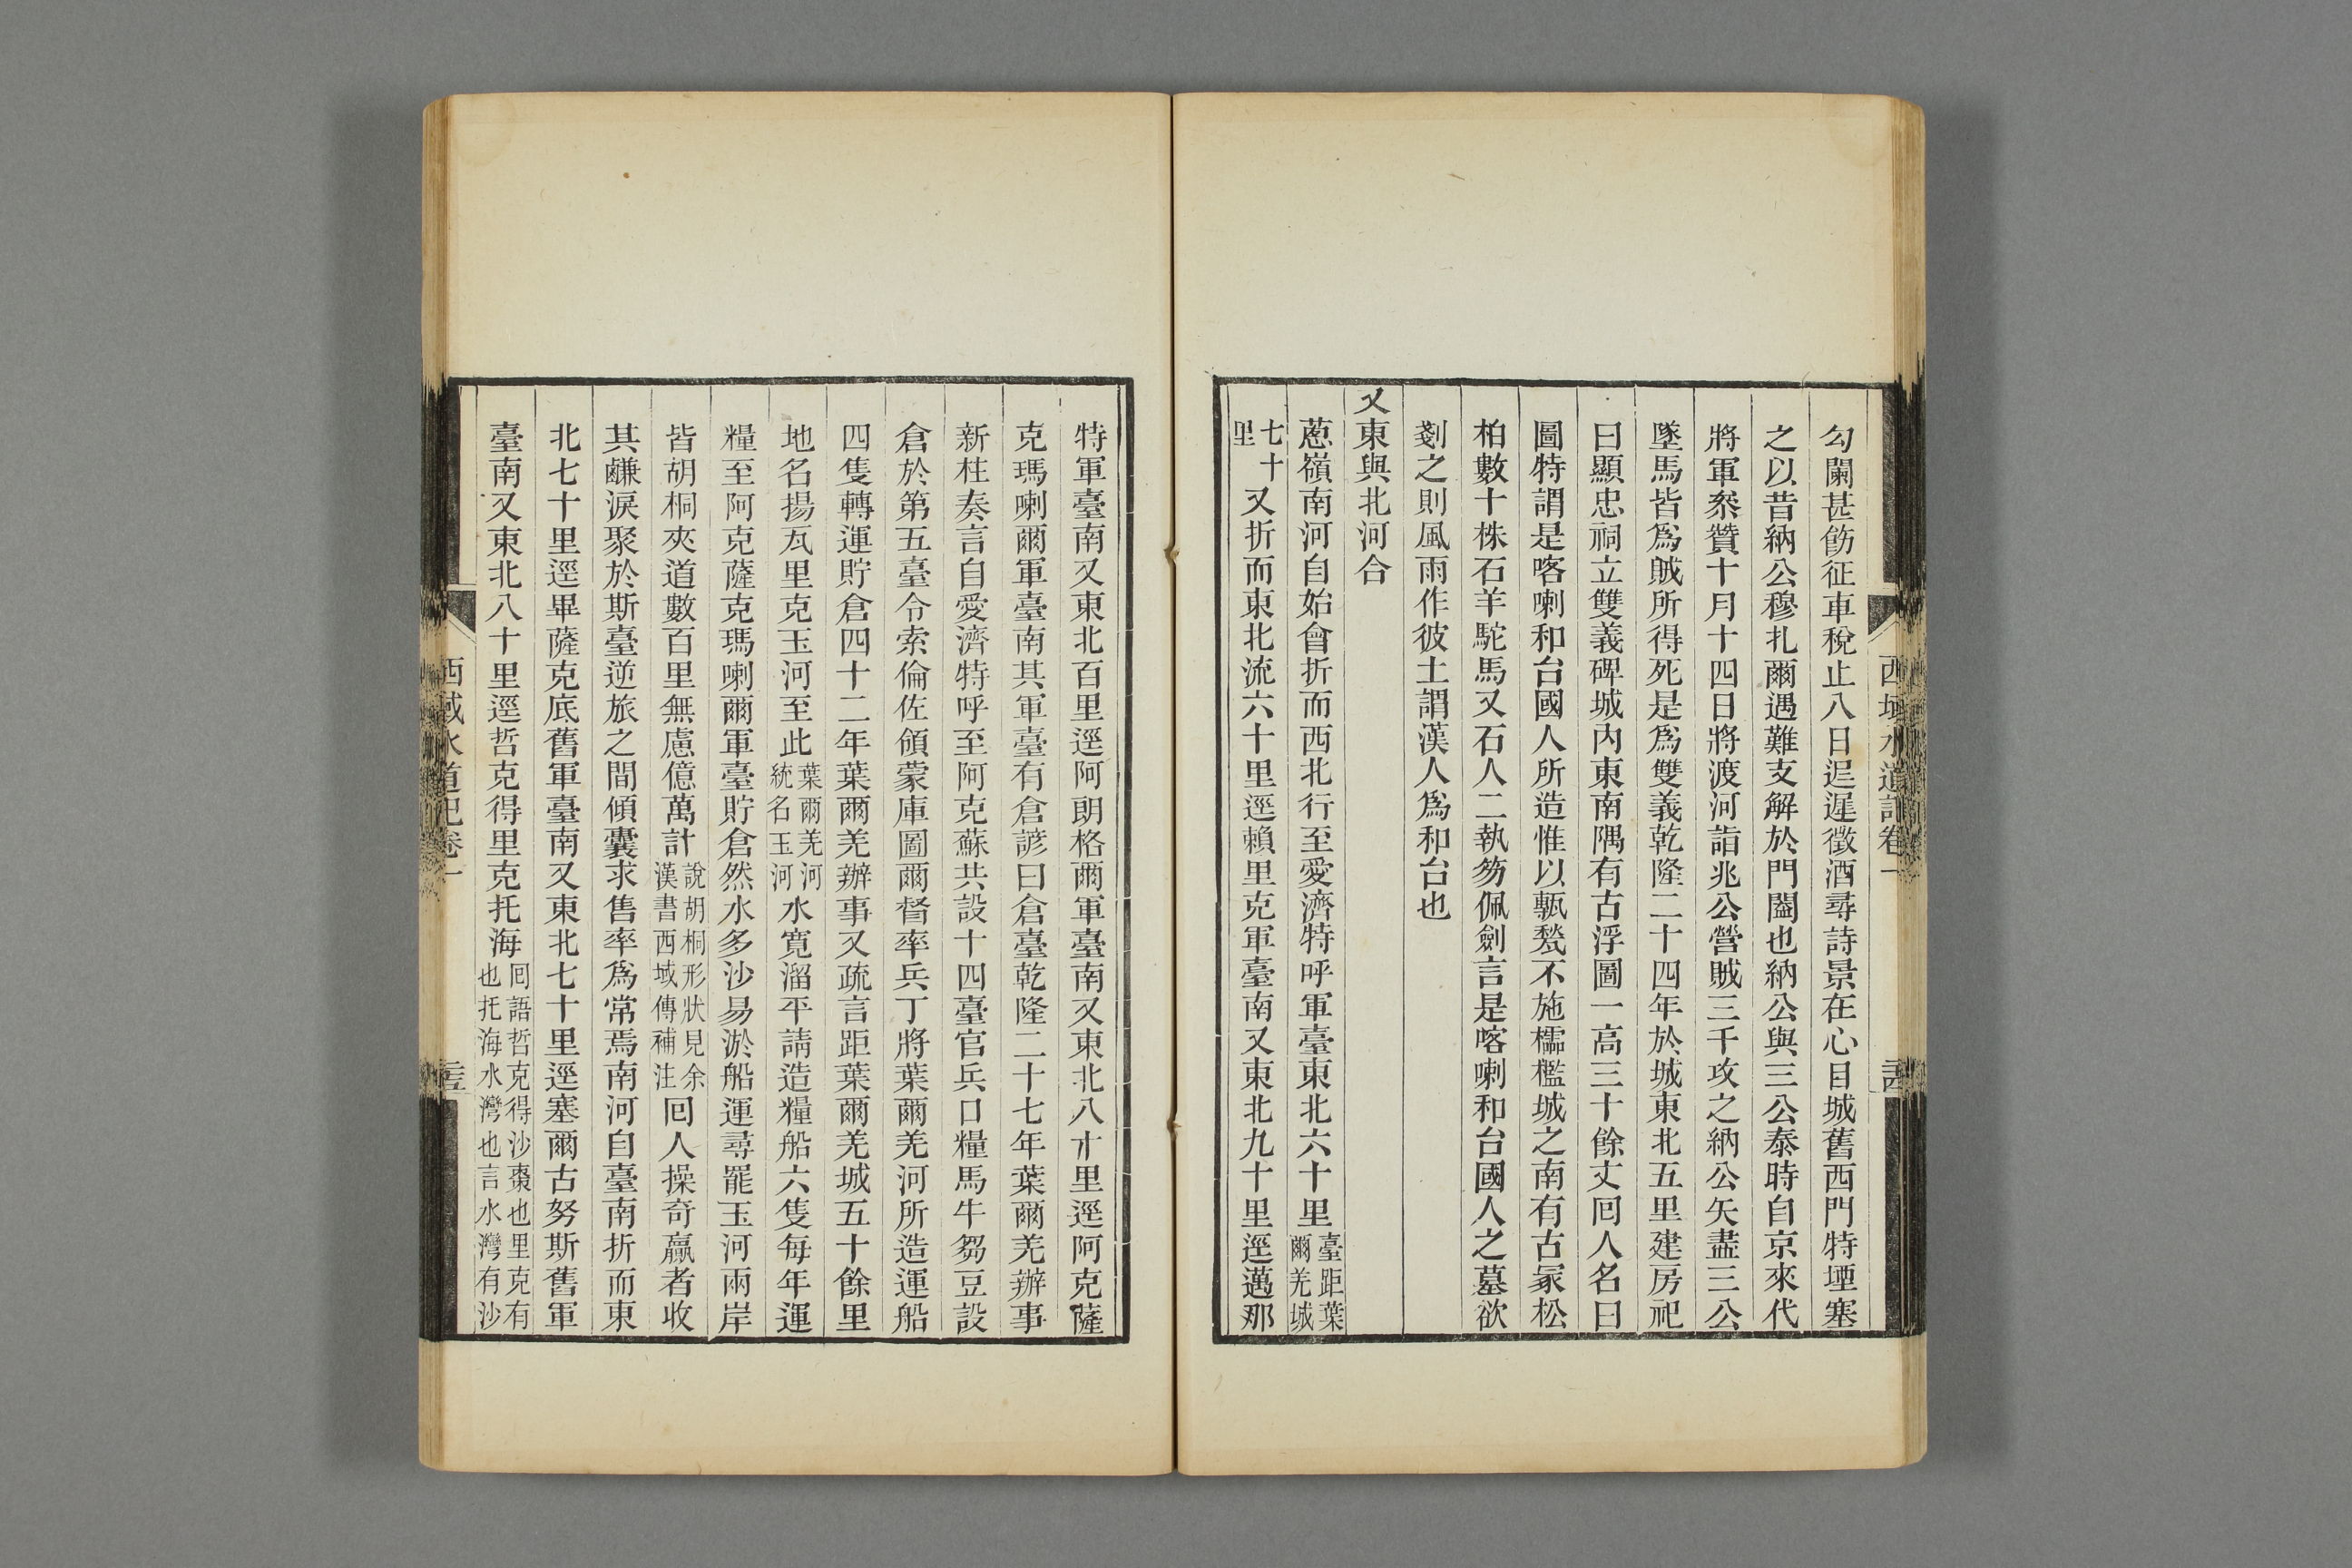 西域水道記卷一
勾闌甚飭征車稅止八日遲遲徵酒尋詩景在心目城舊西門特堙塞
之以昔納公穆扎爾遇難支解於門闔也納公與三公泰時自京來代
將軍叅贊十月十四日將渡河詣兆公營賊三千攻之納公矢盡三公
墜馬皆爲賊所得死是爲雙義乾隆二十四年於城東北五里建房祀
曰顯忠祠立雙義碑城內東南隅有古浮圖一高三十餘丈囘人名曰
圖特謂是喀喇和台國人所造惟以甎甃不施檽檻城之南有古冢松
柏數十株石羊駝馬又石人二執笏佩劍言是喀喇和台國人之墓欲
剗之則風雨作彼土謂漢人爲和台也
又東與北河合
蔥嶺南河自始會折而西北行至愛濟特呼軍臺東北六十里臺距葉爾羌城
七十里又折而東北流六十里逕賴里克軍臺南又東北九十里逕邁那
特軍臺南又東北百里逕阿朗格爾軍臺南又東北八十里逕阿克薩
克瑪喇爾軍臺南其軍臺有倉諺曰倉臺乾隆二十七年葉爾羌辦事
新柱奏言自愛濟特呼至阿克蘇共設十四臺官兵口糧馬牛芻豆設
倉於第五臺令索倫佐領蒙庫圖爾督率兵丁將葉爾羌河所造運船
四隻轉運貯倉四十二年葉爾羌辦事又疏言距葉爾羌城五十餘里
地名揚瓦里克玉河至此葉爾羌河統名玉河水寬溜平請造糧船六隻每年運
糧至阿克薩克瑪喇爾軍臺貯倉然水多沙易淤船運尋罷玉河兩岸
皆胡桐夾道數百里無慮億萬計說胡桐形狀見余漢書西域傳補注囘人操奇贏者收
其鹻淚聚於斯臺逆旅之間傾囊求售率爲常焉南河自臺南折而東
北七十里逕畢薩克底舊軍臺南又東北七十里逕塞爾古努斯舊軍
臺南又東北八十里逕哲克得里克托海囘語哲克得沙棗也里克有也托海水灣也言水灣有沙
西域水道記卷一